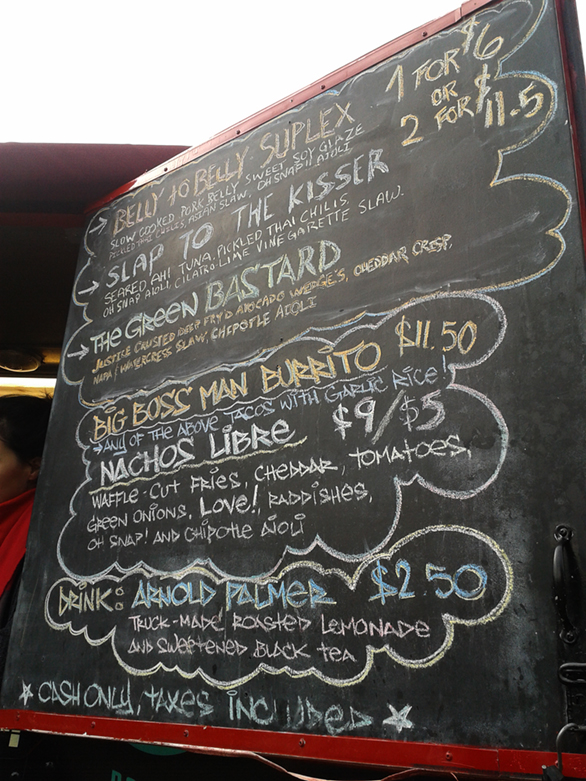 1 FOR $6
OR
2 FOR $11.5
→ BELLY to BELLY SUPLEX
SLOW COOKED PORK BELLY, SWEET SOY GLAZE
PICKLED THAI CHILIES, ASIAN SLAW, OH SNAP!! AIOLI
→ SLAP TO THE KISSER
SEARED AHI TUNA, PICKLED THAI CHILIS,
OH SNAP AIOLI CILATRO-LIME VINEGARETTE SLAW.
→ THE GREEN BASTARD
JUSTICE CRUSTED DEEP FRY'D AVOCADO WEDGE'S, CHEDDAR CRISP,
NAPA/WATERCRESS SLAW, CHIPOTLE AIOLI
BIG BOSS MAN BURRITO $11.50
→ ANY OF THE ABOVE TACOS WITH GARLIC RICE!
NACHOS LIBRE $9/$5
WAFFLE-CUT FRIES, CHEDDAR, TOMATOES,
GREEN ONIONS, LOVE!, RADDISHES,
OH SNAP! AND CHIPOTLE AIOLI
DRINK: ARNOLD PALMER $2.50
TRUCK-MADE ROASTED LEMONADE
AND SWEETENED BLACK TEA
☆ CASH ONLY, TAXES INCLUDED ☆